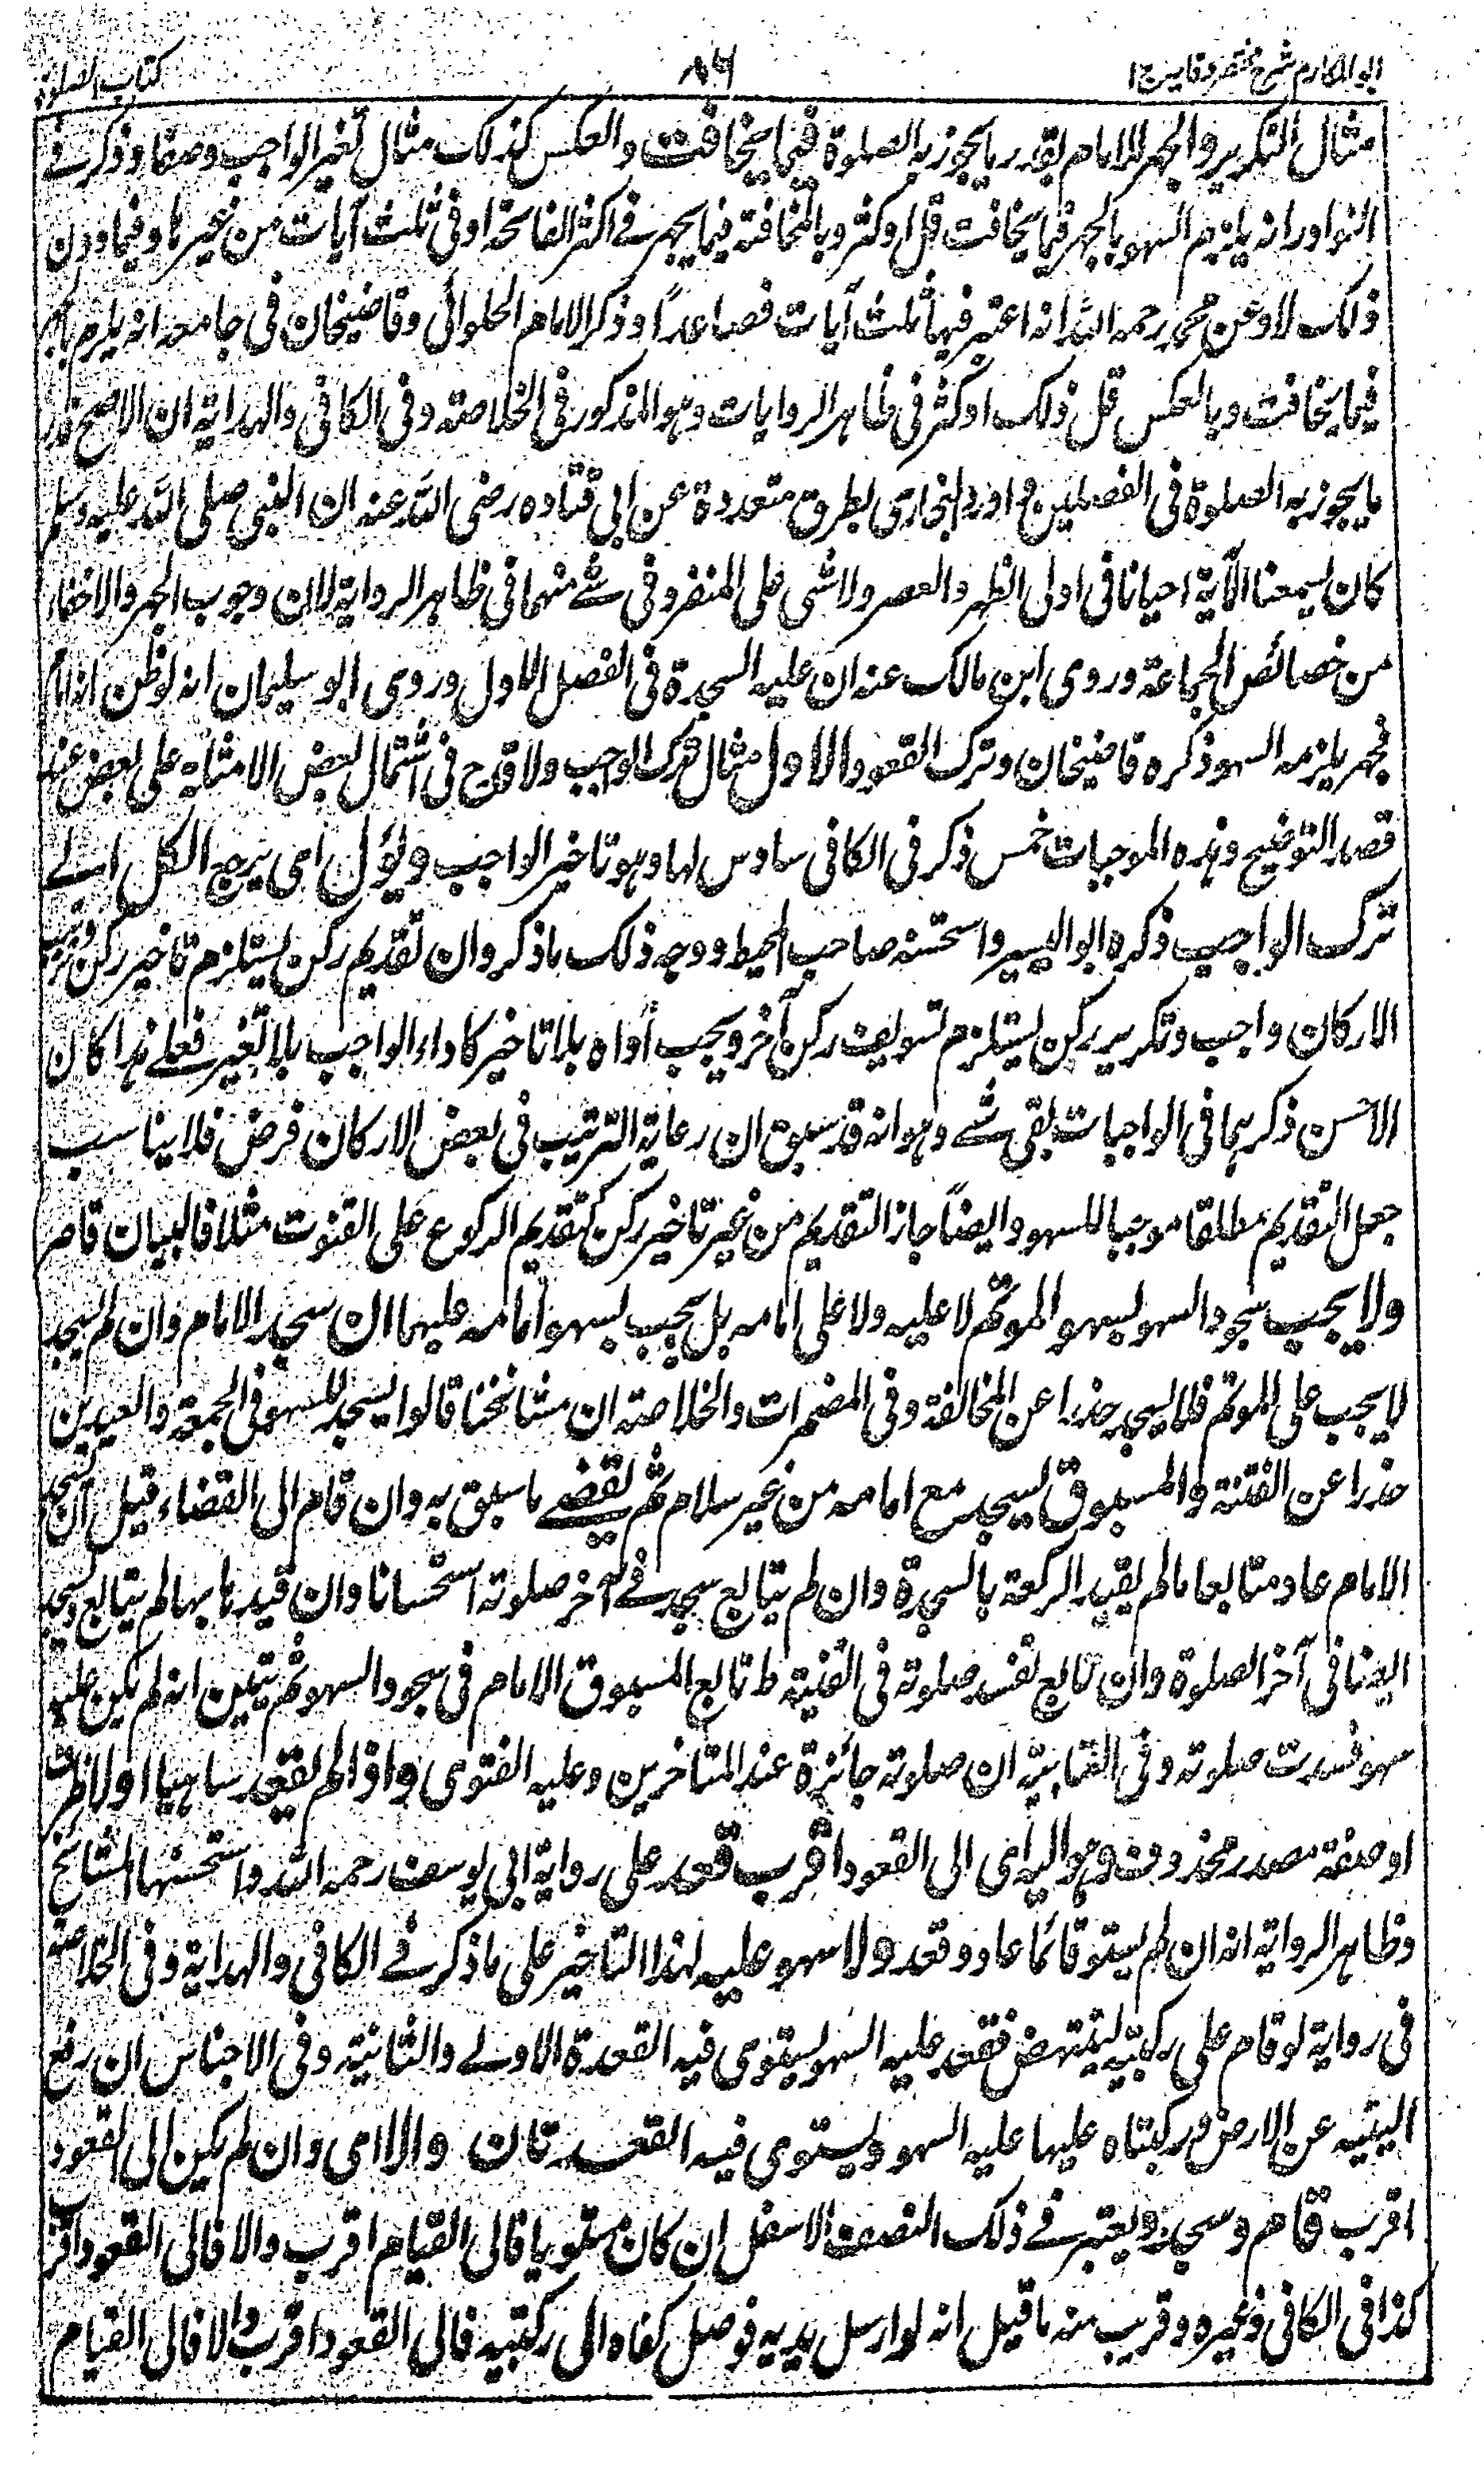 ابو المکارم شرح مختصر وقایہ ج ۱
۸۶
کتاب الصلوة
مثال التکریر والجهر للامام بقدر ما یجوز به الصلوة فیما یخافت والعکس کذلک مثال تغیر الواجب وصفا وذکر فے
النوادر انه یلزم السهو بالجهر فیما یخافت قل او کثر وبالمخافتة فیما یجهر فے اکثر الفاتحة او فی ثلث آیات من غیرها وفیما دون
ذلک لا وعن محمد رحمه الله انه اعتبر فیها ثلث آیات فصاعداً وذکر الامام الحلوائی وقاضیخان فی جامعه انه یلزم بالجهر
فیما یخافت وبالعکس قل ذلک او کثر فی ظاهر الروایات وهو المذکور فی الخلاصة وفی الکافی والهدایة ان الاصح قدر
ما یجوز به الصلوة فی الفصلین واورد البخاری بطرق متعددة عن ابی قتاده رضی الله عنه ان النبی صلی الله علیه وسلم
کان یسمعنا الآیة احیانا فی اولی الظهر والعصر ولا شئ علی المنفرد فی شے منهما فی ظاهر الروایة لان وجوب الجهر والاخفاء
من خصائص الجماعة وروی ابن مالک عنه ان علیه السجدة فی الفصل الاول وروی ابو سلیمان انه لو ظن انه امام
فجهر یلزمه السهو ذکره قاضیخان وترک القعود الاول مثال ترک الواجب ولا قدح فی اشتمال بعض الامثلة علی بعض عند
قصد التوضیح وهذه الموجبات خمس ذکر فی الکافی سادس لها وهو تاخیر الواجب ویؤل ای یرجع الکل الے
ترک الواجب ذکره ابو الیسر واستحسنه صاحب المحیط ووجه ذلک ما ذکر وان تقدیم رکن یستلزم تاخیر رکن وترتیب
الارکان واجب وتکریر رکن یستلزم تسویف رکن آخر ویجب أداه بلا تاخیر کاداء الواجب بلا تغیر فعلے هذا کان
الاحسن ذکرهما فی الواجبات بقی شے وهو انه قد سبق ان رعایة الترتیب فی بعض الارکان فرض فلا یناسب
جعل التقدیم مطلقا موجبا للسهو وایضاً جاز التقدیم من غیر تاخیر رکن کتقدیم الرکوع علی القنوت مثلا فالبیان قاصر
ولا یجب سجود السهو بسهو الموتم لا علیه ولا علی امامه بل یجب بسهو امامه علیهما ان سجد الامام وان لم یسجد
لا یجب علی الموتم فلا یسجد حذرا عن المخالفة وفی المضمرات والخلاصة ان مشائخنا قالوا یسجد للسهو فی الجمعة والعیدین
حذرا عن الفتنة والمسبوق یسجد مع امامه من غیر سلام ثم یقضے ما سبق به وان قام الی القضاء قبل ان یسجد
الامام عاد متابعا ما لم یقید الرکعة بالسجدة وان لم یتابع سجد فے آخر صلوته استحسانا وان قیدها بها لم یتابع وسجد
ایضا فی آخر الصلوة وان تابع تفسد صلوته فی القنیة ط تابع المسبوق الامام فی سجود السهو ثم تبین انه لم یکن علیه
سهو فسدت صلوته وفی العتابیة ان صلوته جائزة عند المتاخرین وعلیه الفتوی واذا لم یقعد ساهیا اولا ظرف
او صفة مصدر محذوف وهو الیه ای الی القعود اقرب قعد علی روایة ابی یوسف رحمه الله واستحسنها المشائخ
وظاهر الروایة انه ان لم یستو قائما عاد وقعد ولا سهو علیه لهذا التاخیر علی ما ذکر فے الکافی والهدایة وفی الخلاصة
فی روایة لو قام علی رکبتیه لینتهض فقعد علیه السهو یستوی فیه القعدة الاولے والثانیة وفی الاجناس ان رفع
الیتیه عن الارض ورکبتاه علیها علیه السهو ویستوی فیه القعدتان والا ای وان لم یکن الی القعود
اقرب قام وسجد ویعتبر فے ذلک النصف الاسفل ان کان مستویا فالی القیام اقرب والا فالی القعود اقرب
کذا فی الکافی وغیره وقریب منه ما قیل انه لو ارسل یدیه فوصل کفاه الی رکبتیه فالی القعود اقرب والا فالی القیام